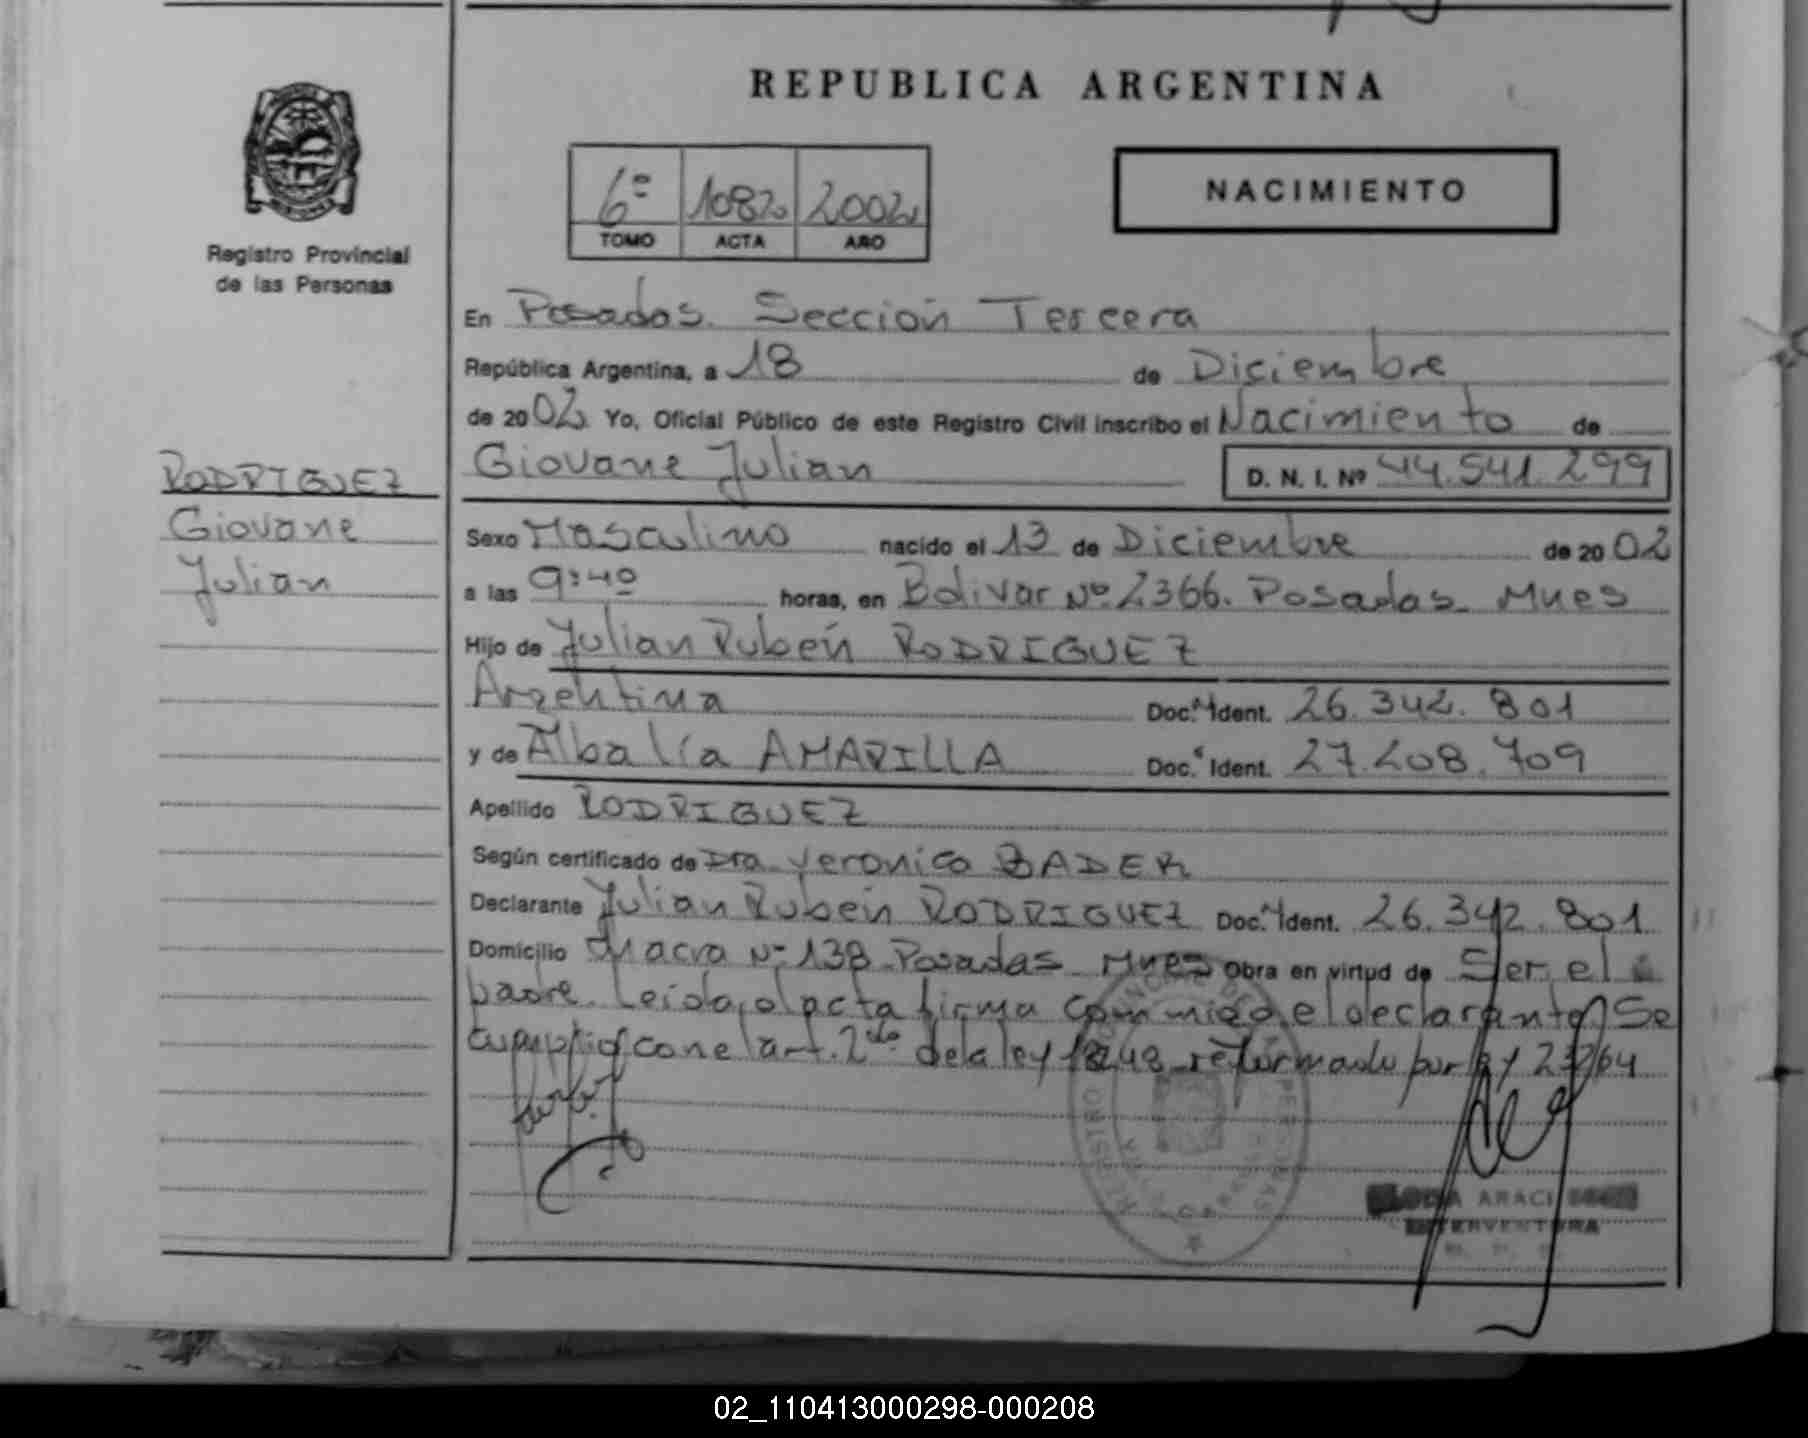 REPUBLICA ARGENTINA
6º 1082 2002
TOMO ACTA AÑO
NACIMIENTO
Registro Provincial
de las Personas
En Posadas. Sección Tercera
República Argentina, a 18 de Diciembre
de 2002 Yo, Oficial Público de este Registro Civil inscribo el Nacimiento de
Giovane Julian D. N. I. Nº 44.541.299
RODRIGUEZ
Giovane
Julian
Sexo Masculino nacido el 13 de Diciembre de 2002
a las 9:40 horas, en Bolivar Nº 2366. Posadas. Mnes
Hijo de Julian Rubén RODRIGUEZ
Argentina Doc. Ident. 26.342.801
y de Alba lía AMARILLA Doc. Ident. 27.208.709
Apellido RODRIGUEZ
Según certificado de Dra Veronica BADER
Declarante Julian Rubén RODRIGUEZ Doc. Ident. 26.342.801
Domicilio Nº 138 Posadas Mnes Obra en virtud de Ser el
padre. Leída el acta firma conmigo el declarante Se
cumplió con el art. 2do de la ley 18248 reformado por ley 23264
REGISTRO PERSONAS
ARACI
INTERVENTORA
02_110413000298-000208